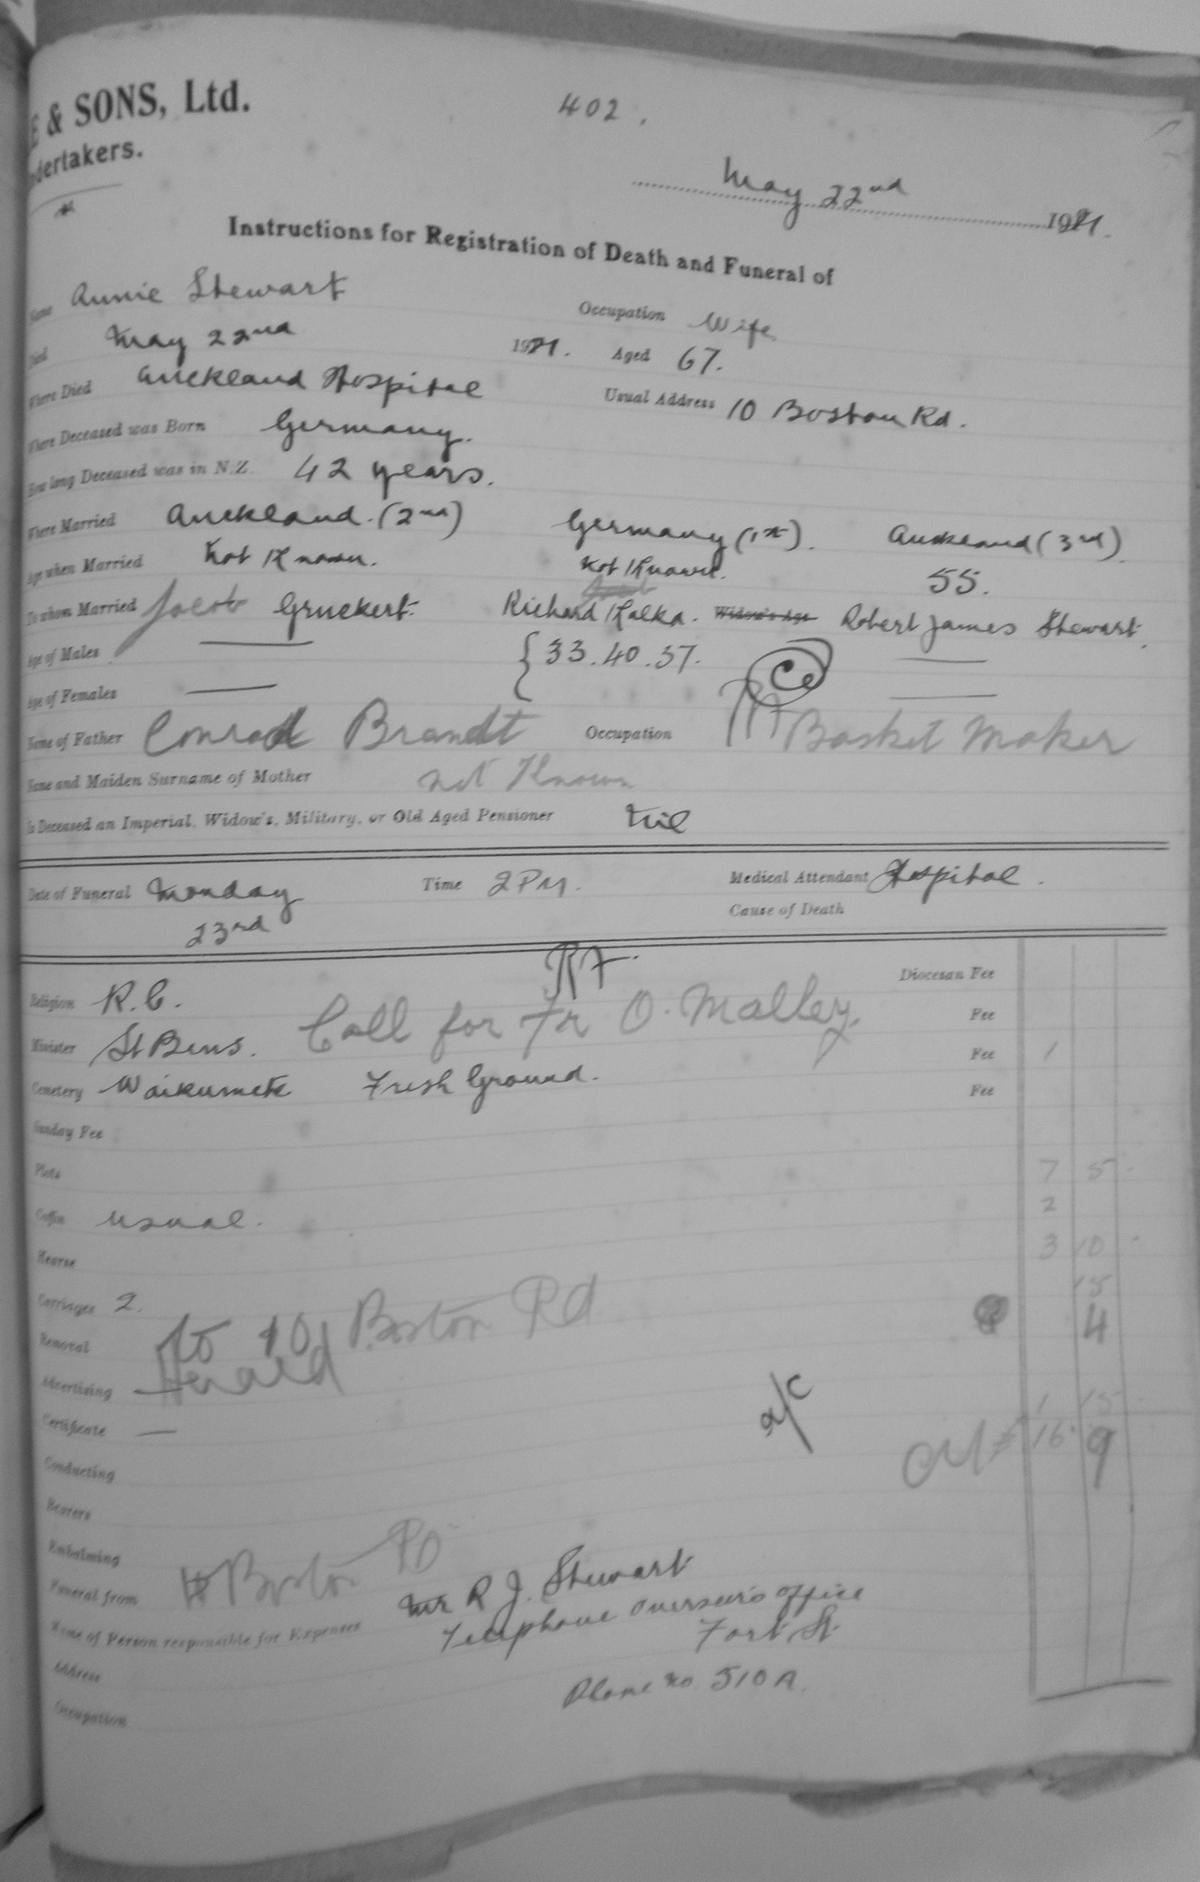 & SONS, Ltd.
dertakers.
402.
May 22nd 1921.
Instructions for Registration of Death and Funeral of
Name Annie Stewart Occupation Wife
Died May 22nd 1921. Aged 67.
Where Died Auckland Hospital Usual Address 10 Boston Rd.
Where Deceased was Born Germany.
How long Deceased was in N.Z. 42 years.
Where Married Auckland. (2nd) Germany (1st). Auckland (3rd)
Age when Married Not Known. Not Known. 55.
To whom Married Jacob Gruckert. Richard Kalka. Widow's Age Robert James Stewart.
Age of Males — { 33. 40. 37. —
Age of Females — —
Name of Father Conrad Brandt Occupation Basket Maker
Name and Maiden Surname of Mother not Known
Is Deceased an Imperial, Widow's, Military, or Old Aged Pensioner Nil
Date of Funeral Monday Time 2 PM. Medical Attendant Hospital.
23rd Cause of Death
Religion R.C. Diocesan Fee
Minister St Bens. Call for Fr O. Malley. Fee
Fee 1
Cemetery Waikumete Fresh Ground. Fee
Sunday Fee
Plots 7 5
Coffin usual. 2
Hearse 3 10
Carriages 2. 15
Removal to 10 Boston Rd 4
Advertising Herald
Certificate — a/c 1 15
16 9
Conducting
Bearers
Embalming
Funeral from Boston Rd
Name of Person responsible for Expenses Mr R J. Stewart
Telephone Overseer's Office
Fort St
Address
Phone no. 510A.
Occupation